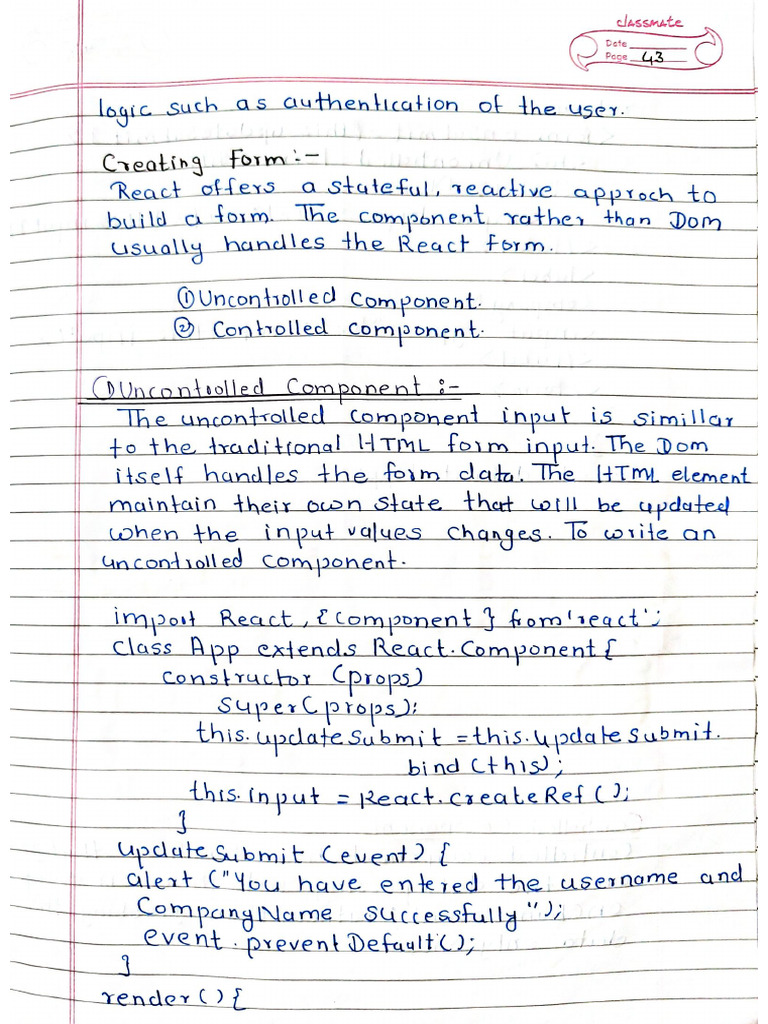 classmate
Date
Page 43
logic such as authentication of the user.
Creating Form :-
React offers a stateful, reactive approch to
build a form. The component rather than Dom
usually handles the React form.
① Uncontrolled component.
② Controlled component.
① Uncontrolled Component :-
The uncontrolled component input is simillar
to the traditional HTML form input. The Dom
itself handles the form data. The HTML element
maintain their own state that will be updated
when the input values changes. To write an
uncontrolled component.
import React, { component } from 'react';
class App extends React.Component {
constructor (props)
super(props);
this.updateSubmit = this.updateSubmit.
bind (this);
this.input = React.createRef();
}
updateSubmit (event) {
alert ("You have entered the username and
CompanyName successfully");
event.preventDefault();
}
render() {